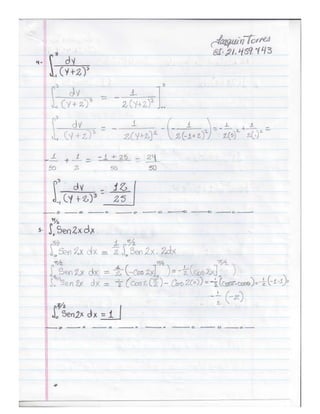 Joaquin Torres
CI: 21.459.443
4- ∫ dv / (v+2)³
∫ dv / (v+2)³ = - 1 / 2(v+2)² ]³
∫ dv / (v+2)³ = - 1 / 2(v+2)² - ( - 1 / 2(-1+2)² ) = - 1 / 2(5)² + 1 / 2(1)² =
- 1/50 + 1/2 = -1 + 25 / 50 = 24 / 50
∫ dv / (v+2)³ = 12 / 25
5- ∫ π/2 Sen 2x dx
∫ Sen 2x dx = 1/2 ∫ Sen 2x . 2dx
∫ Sen 2x dx = 1/2 (-Cos 2x] π/2 ) = - 1/2 (Cos 2x] π/2 )
∫ Sen 2x dx = - 1/2 (Cos 2(π/2) - Cos 2(0)) = - 1/2 (Cos π - Cos 0) = - 1/2 (-1-1) =
- 1/2 (-2)
∫ π/2 Sen 2x dx = 1